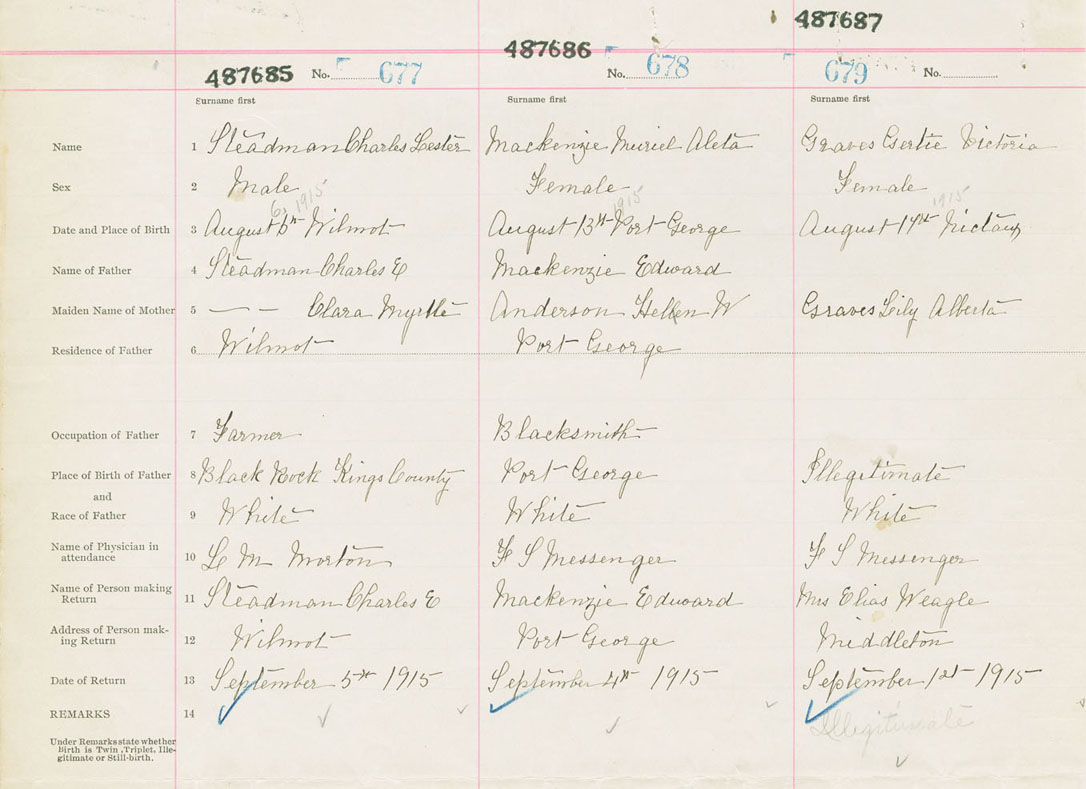 487687
487686
487685 No. 677 No. 678 679 No.
Surname first Surname first Surname first
Name 1 Steadman Charles Lester Mackenzie Muriel Aleta Graves Gertie Victoria
Sex 2 Male Female Female
6 1915 1915 1915
Date and Place of Birth 3 August 6th Wilmot August 13th Port George August 14th Nictaux
Name of Father 4 Steadman Charles E Mackenzie Edward
Maiden Name of Mother 5 — — Clara Myrtle Anderson Hellen W Graves Lily Alberta
Residence of Father 6 Wilmot Port George
Occupation of Father 7 Farmer Blacksmith
Place of Birth of Father 8 Black Rock Kings County Port George Illegitimate
and
Race of Father 9 White White White
Name of Physician in
attendance 10 L M Morton F S Messenger F S Messenger
Name of Person making
Return 11 Steadman Charles E Mackenzie Edward Mrs Elias Weagle
Address of Person mak-
ing Return 12 Wilmot Port George Middleton
Date of Return 13 September 5th 1915 September 4th 1915 September 1st 1915
REMARKS 14 Illegitimate
Under Remarks state whether
Birth is Twin, Triplet, Ille-
gitimate or Still-birth.